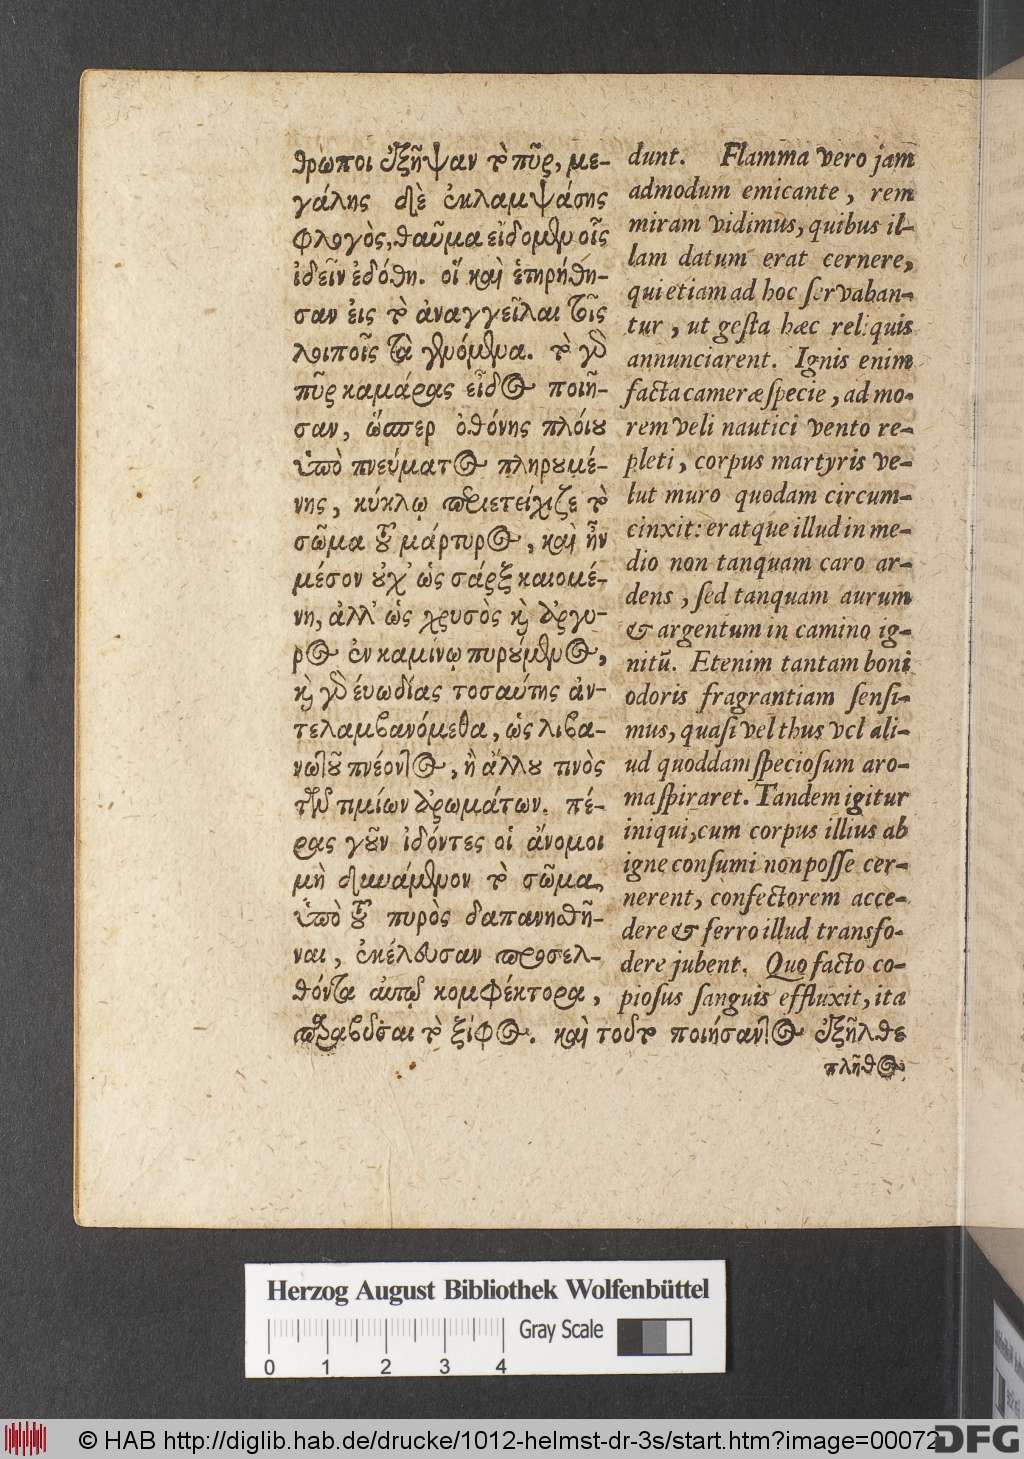 θρωποι ἐξῆψαν τὸ πῦρ, με-
γάλης δὲ ἐκλαμψάσης
φλογὸς, θαῦμα εἴδομεν οἷς
ἰδεῖν ἐδόθη. οἵ καὶ ἐτηρήθη-
σαν εἰς τὸ ἀναγγεῖλαι τοῖς
λοιποῖς τὰ γενόμενα. τὸ γὰρ
πῦρ καμάρας εἶδος ποιῆ-
σαν, ὥσπερ ὀθόνης πλόιου
ὑπὸ πνεύματος πληρουμέ-
νης, κύκλῳ περιετείχιζε τὸ
σῶμα τοῦ μάρτυρος, καὶ ἦν
μέσον οὐχ' ὡς σάρξ καιομέ-
νη, ἀλλ' ὡς χρυσὸς καὶ ἄργυ-
ρος ἐν καμίνῳ πυρούμενος,
καὶ γὰρ ἐυωδίας τοσαύτης ἀν-
τελαμβανόμεθα, ὡς λιβα-
νωτοῦ πνέοντος, ἢ ἄλλου τινὸς
τῶν τιμίων ἀρωμάτων. πέ-
ρας γοῦν ἰδόντες οἱ ἄνομοι
μὴ δυνάμενον τὸ σῶμα
ὑπὸ τοῦ πυρὸς δαπανηθῆ-
ναι, ἐκέλευσαν προσελ-
θόντα αὐτῷ κομφέκτορα,
παραβῦσαι τὸ ξίφος. καὶ τοῦτο ποιήσαντος ἐξῆλθε
πλῆθος
dunt. Flamma vero jam̄
admodum emicante, rem
miram vidimus, quibus il-
lam datum erat cernere,
qui etiam ad hoc servaban-
tur, ut gesta hæc reliquis
annunciarent. Ignis enim
facta cameræ specie, ad mo-
rem veli nautici vento re-
pleti, corpus martyris ve-
lut muro quodam circum-
cinxit: eratque illud in me-
dio non tanquam caro ar-
dens, sed tanquam aurum
& argentum in camino ig-
nitū. Etenim tantam boni
odoris fragrantiam sensi-
mus, quasi vel thus vel ali-
ud quoddam speciosum aro-
ma spiraret. Tandem igitur
iniqui, cum corpus illius ab
igne consumi non posse cer-
nerent, confectorem acce-
dere & ferro illud transfo-
dere jubent. Quo facto co-
piosus sanguis effluxit, ita
Herzog August Bibliothek Wolfenbüttel
Gray Scale
0 1 2 3 4
© HAB http://diglib.hab.de/drucke/1012-helmst-dr-3s/start.htm?image=00072
DFG